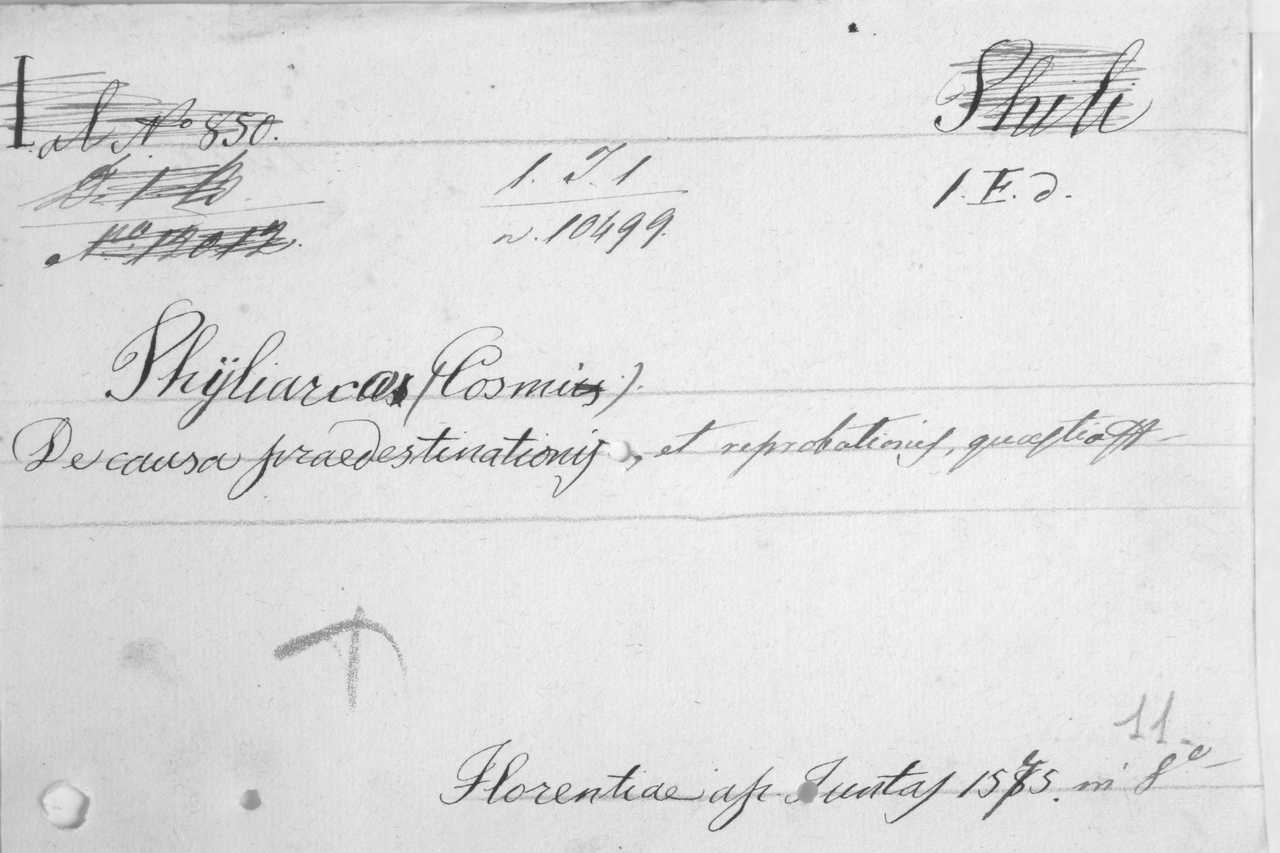 N° 850.
Phili
D. 1. B.
1. J. 1
1. E. d.
N.ro 12012.
n. 10499.
Phÿliarcus (Cosmus).
De causa praedestinationis, et reprobationis, quaestio
Florentiae ap. Juntas 1575. in 8°
11.